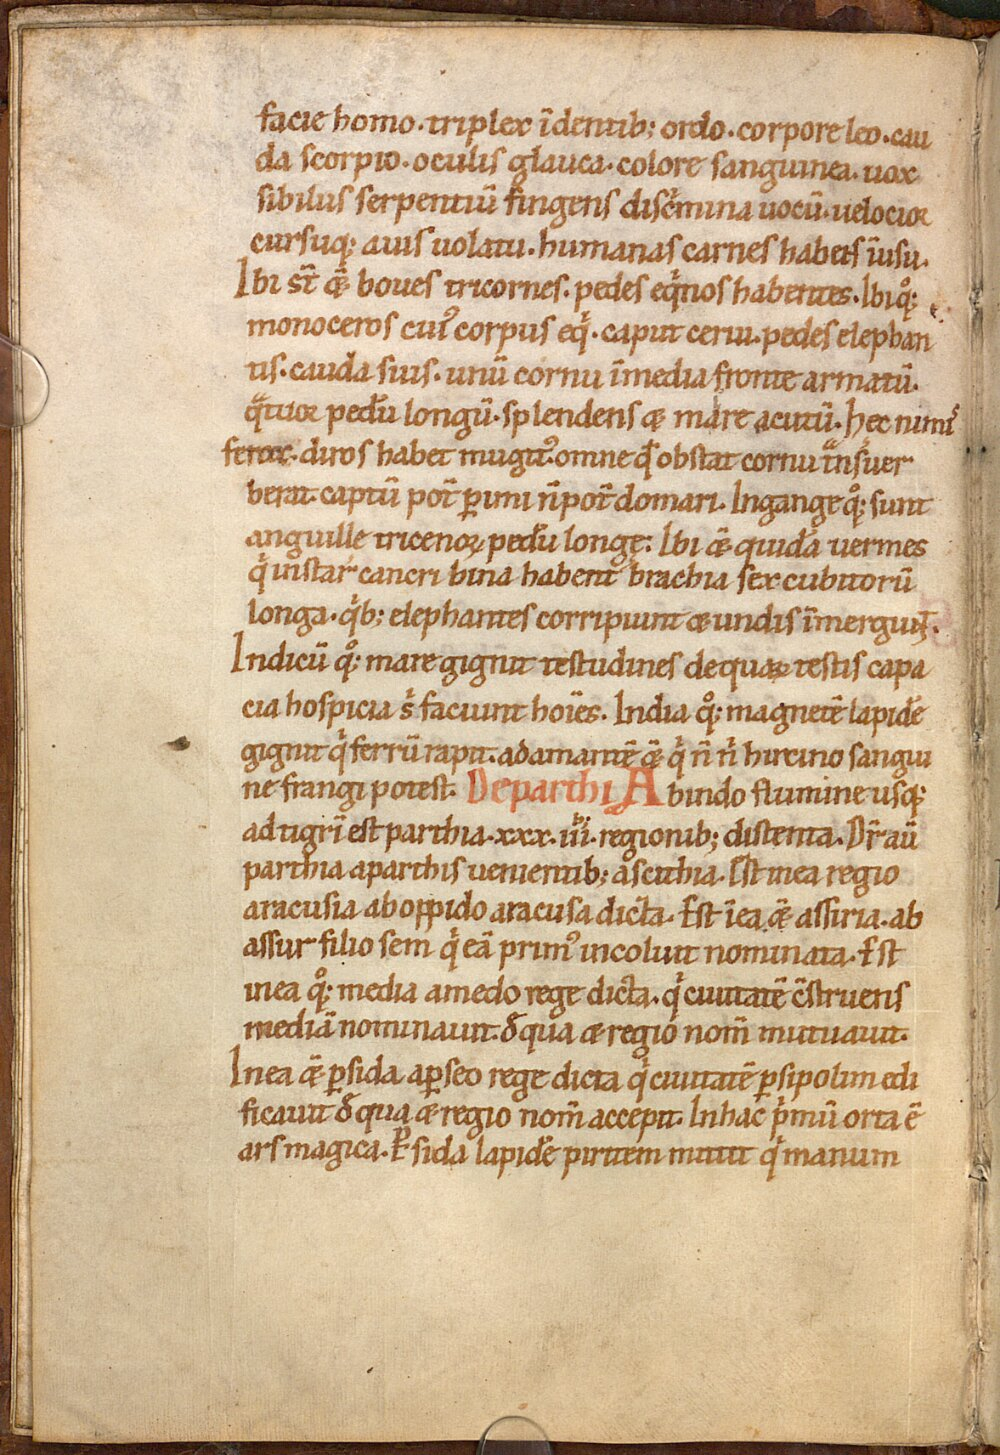 facie homo. triplex īdentib; ordo. corpore leo. cau
da scorpio. oculis glauca. colore sanguinea. uox
sibilus serpentiū fingens discͥmina uocū. uelocior
cursuq; auis uolatu. humanas carnes habens īusu.
Ibi st̄ & boues tricornes. pedes eqͥnos habentes. Ibiqͦ;
monoceros cuiꝰ corpus eqͥ. caput cerui. pedes elephan
tis. cauda suis. unū cornu īmedia fronte armatū.
qͣtuor pedū longū. splendens & mͥre acutū. hec nimiͥ
ferox. diros habet mugitꝰ. omne qd̄ obstat cornu tͣnsuer
berat. captū pot̄ ꝑimi n̄ pot̄ domari. Ingange qͦ; sunt
anguille tricenoꝝ pedū longę. Ibi & quidā uermes
qͥ instar cancri bina habent brachia sex cubitorū
longa. qͥb; elephantes corripiunt & undis īmergunt.
Indicū qͦ; mare gignit testudines de quaꝝ testis capa
cia hospicia sͥ faciunt hoīes. India qͦ; magnetē lapidē
gignit qͥ ferrū rapit. adamantē & qͥ n̄ nͥ hircino sangui
ne frangi potest. De parthi A b indo flumine usq;
ad tigrī est parthia. xxx. iii. regionib; distenta. Dr̄ aū
parthia a parthis uenientib; a scithia. Est in ea regio
aracusia ab oppido aracusa dicta. Est ī ea & assiria. ab
assur filio sem qͥ eā primꝰ incoluit nominata. Est
in ea qͦ; media a medo rege dicta. qͥ ciuitatē c̄struens
mediā nominauit. d̄ qua & regio nom̄ mutuauit.
In ea & ꝑsida a ꝑseo rege dicta qͥ ciuitatē ꝑsipolim edi
ficauit d̄ qua & regio nom̄ accepit. In hac pͥmū orta ē
ars magica. Ꝑsida lapidē piritem mittit qͥ manum